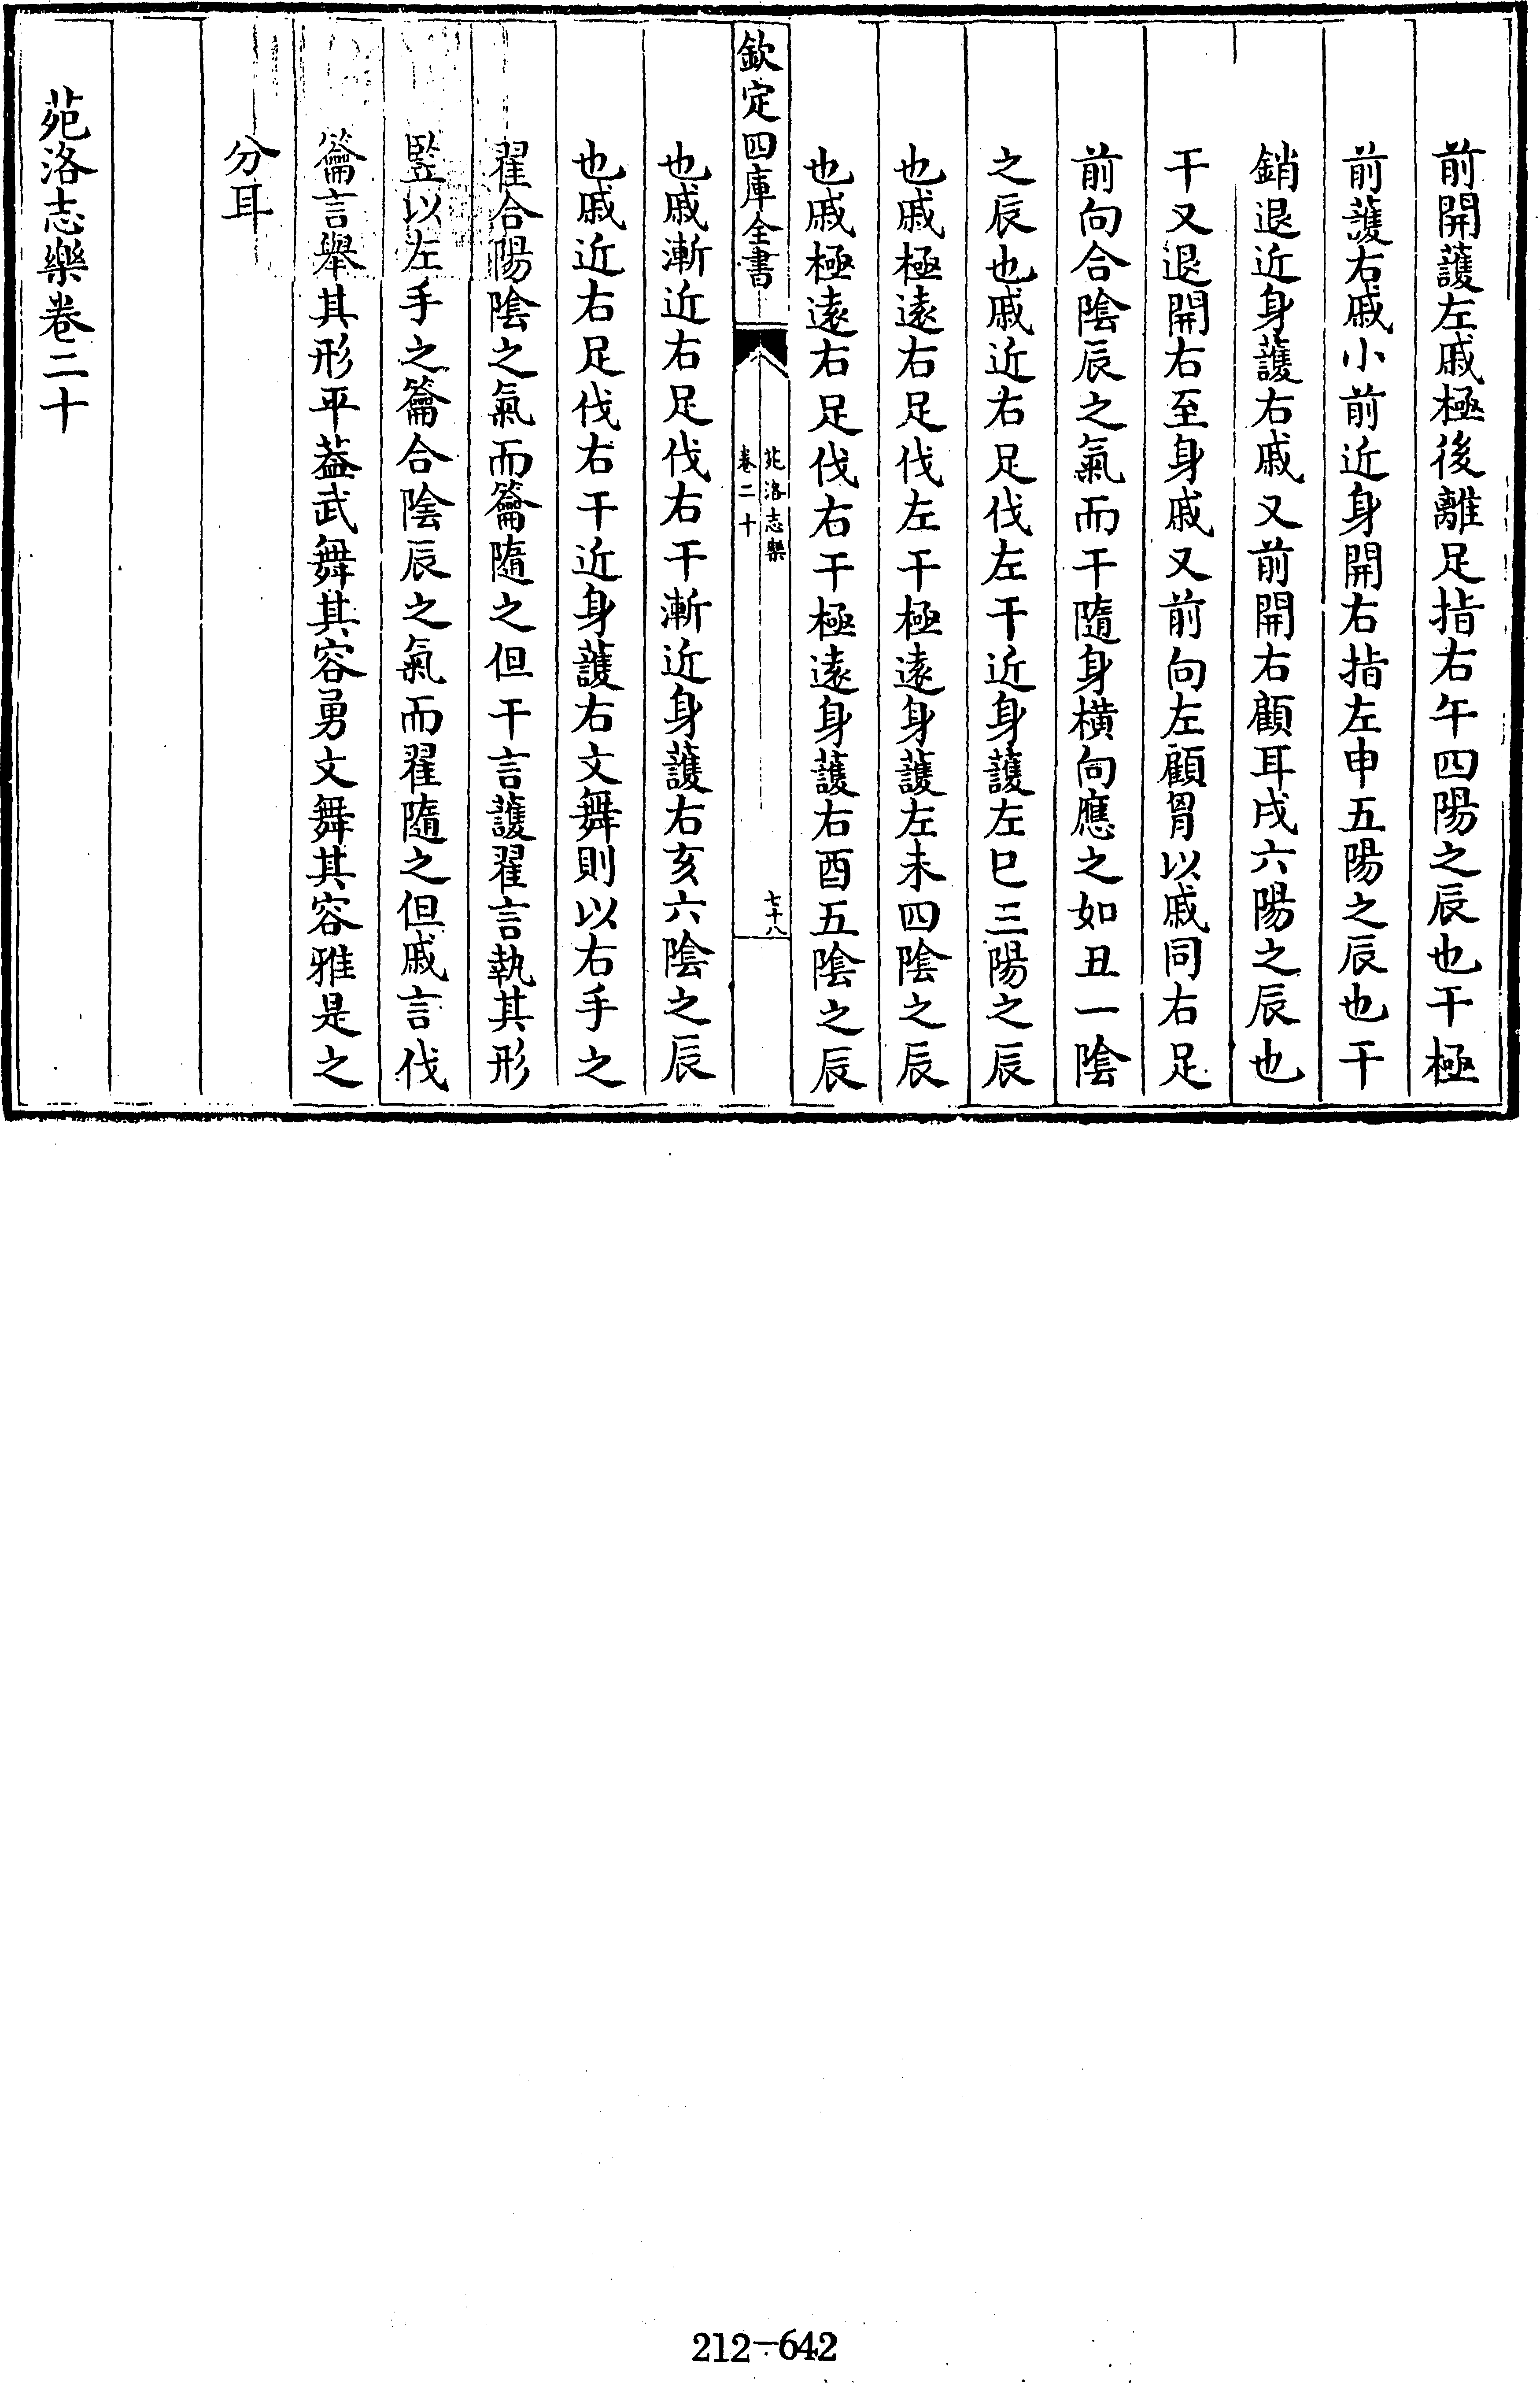 前開䕶左戚極後離足指右午四陽之辰也干極
前䕶右戚小前近身開右指左申五陽之辰也干
銷退近身䕶右戚又前開右顧耳戌六陽之辰也
干又退開右至身戚又前向左顧胷以戚同右足
前向合陰辰之氣而干隨身橫向應之如丑一陰
之辰也戚近右足伐左干近身䕶左巳三陽之辰
也戚極逺右足伐左干極逺身䕶左未四陰之辰
也戚極逺右足伐右干極逺身䕶右酉五陰之辰
欽定四庫全書
苑洛志樂
卷二十
七十八
也戚漸近右足伐右干漸近身䕶右亥六陰之辰
也戚近右足伐右干近身䕶右文舞則以右手之
翟合陽陰之氣而籥隨之但干言䕶翟言執其形
豎以左手之籥合陰辰之氣而翟隨之但戚言伐
籥言舉其形平葢武舞其容勇文舞其容雅是之
分耳
苑洛志樂卷二十
212-642